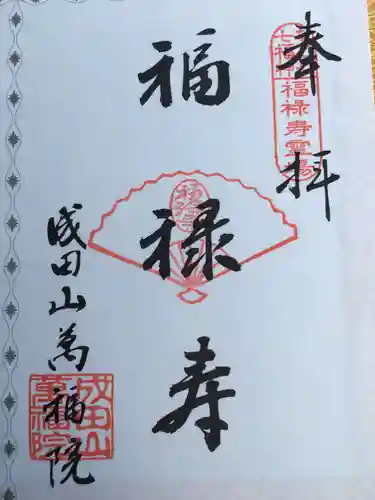 奉拝
七福神福禄寿霊場
福禄寿
成田山萬福院
成田山
萬福院